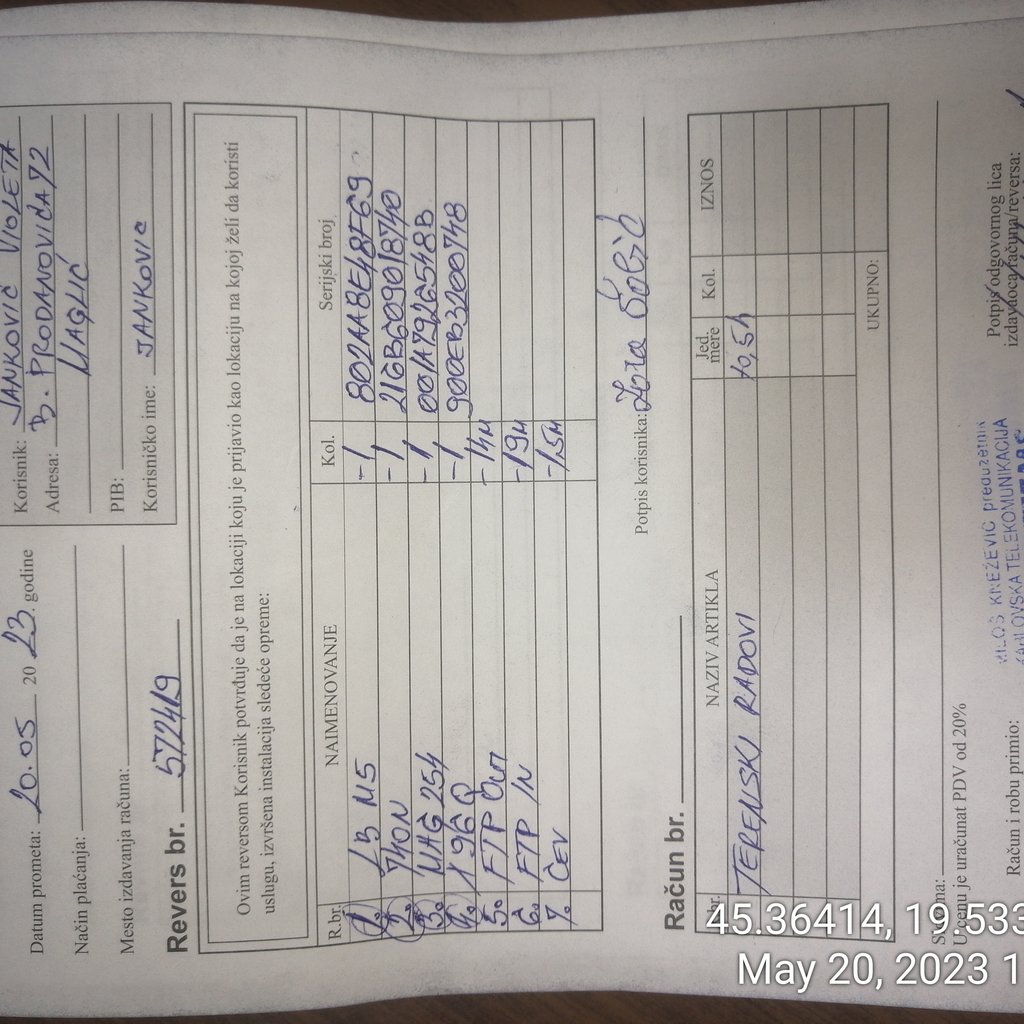 Datum prometa: 20.05 20 23. godine
Način plaćanja:
Mesto izdavanja računa:
Korisnik: JANKOVIĆ VIOLETA
Adresa: B. PRODANOVIĆA 72
MAGLIĆ
PIB:
Korisničko ime: JANKOVIC
Revers br. 572419
Ovim reversom Korisnik potvrđuje da je na lokaciji koju je prijavio kao lokaciju na kojoj želi da koristi
uslugu, izvršena instalacija sledeće opreme:
R.br. NAIMENOVANJE Kol. Serijski broj
1. LB M5 -1 802AA8E48F69
2. 740N -1 216B609018740
3. MAG 254 -1 001A7926548B
4. 196Q -1 900EB3200748
5. FTP OUT -14M
6. FTP IN -19M
7. ČEV -1,5M
Potpis korisnika:
Račun br.
br. NAZIV ARTIKLA Jed. mere Kol. IZNOS
TERENSKI RADOVI 10,5h
UKUPNO:
U cenu je uračunat PDV od 20%
Račun i robu primio:
MILOŠ KNEŽEVIĆ preduzetnik
KARLOVSKA TELEKOMUNIKACIJA
Potpis odgovornog lica
izdavaoca računa/reversa:
45.36414, 19.533
May 20, 2023 1